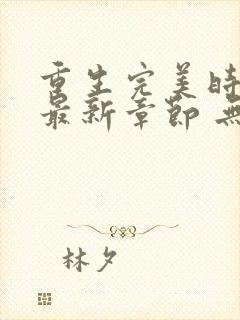 重生完美時
最新章節 無
林夕